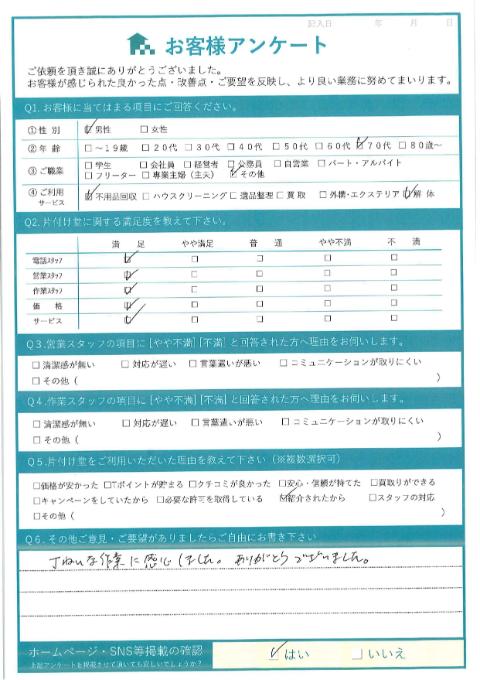 記入日　年　月　日
お客様アンケート
ご依頼を頂き誠にありがとうございました。
お客様が感じられた良かった点・改善点・ご要望を反映し、より良い業務に努めてまいります。
Q1. お客様に当てはまる項目にご回答ください。
①性 別 ☑男性 □女性
②年 齢 □～19歳 □20代 □30代 □40代 □50代 □60代 ☑70代 □80歳～
③ご職業 □学生 □会社員 □経営者 □公務員 □自営業 □パート・アルバイト
□フリーター □専業主婦（主夫） ☑その他
④ご利用サービス ☑不用品回収 □ハウスクリーニング □遺品整理 □買取 □外構・エクステリア ☑解体
Q2. 片付け堂に関する満足度を教えて下さい。
満 足 やや満足 普 通 やや不満 不 満
電話スタッフ ☑ □ □ □ □
営業スタッフ ☑ □ □ □ □
作業スタッフ ☑ □ □ □ □
価 格 ☑ □ □ □ □
サービス ☑ □ □ □ □
Q3. 営業スタッフの項目に［やや不満］［不満］と回答された方へ理由をお伺いします。
□清潔感が無い □対応が遅い □言葉遣いが悪い □コミュニケーションが取りにくい
□その他（ ）
Q4. 作業スタッフの項目に［やや不満］［不満］と回答された方へ理由をお伺いします。
□清潔感が無い □対応が遅い □言葉遣いが悪い □コミュニケーションが取りにくい
□その他（ ）
Q5. 片付け堂をご利用いただいた理由を教えて下さい（※複数選択可）
□価格が安かった □Tポイントが貯まる □クチコミが良かった □安心・信頼が持てた □買取りができる
□キャンペーンをしていたから □必要な許可を取得している ☑紹介されたから □スタッフの対応
□その他（ ）
Q6. その他ご意見・ご要望がありましたらご自由にお書き下さい
丁ねいな作業に感心しました。ありがとうございました。
ホームページ・SNS等掲載の確認
上記アンケートを掲載させて頂いても宜しいでしょうか？
☑はい □いいえ